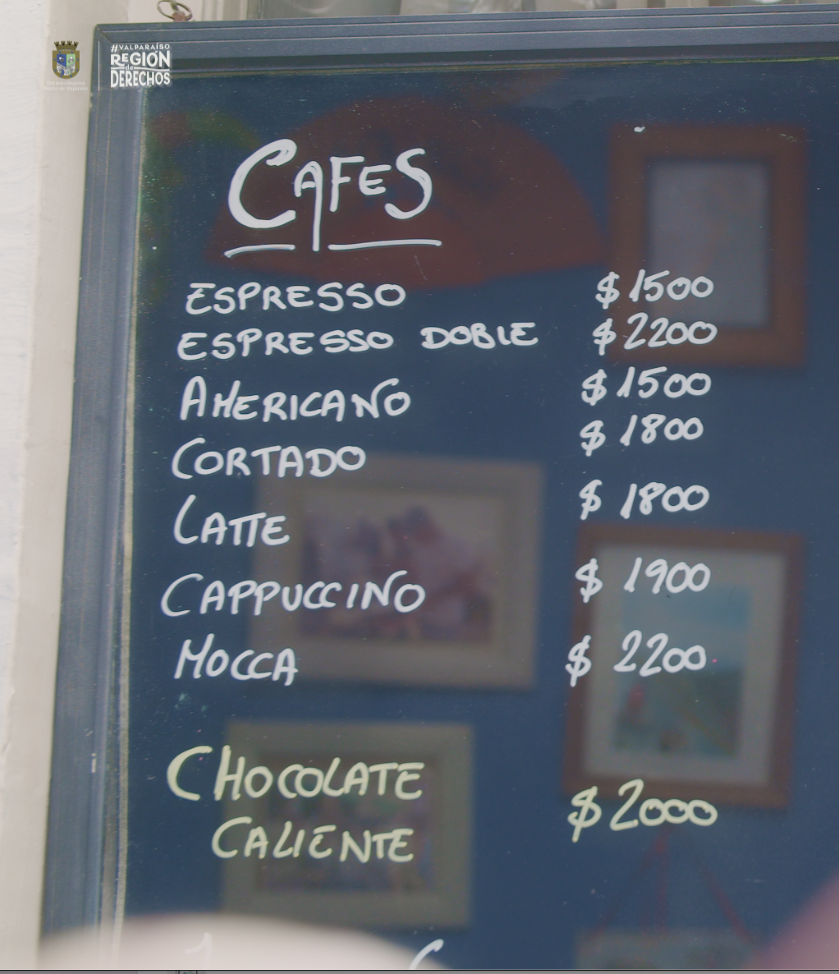 #VALPARAÍSO
REGIÓN
de
DERECHOS
CAFES
ESPRESSO $1500
ESPRESSO DOBLE $2200
AMERICANO $1500
CORTADO $1800
LATTE $1800
CAPPUCCINO $1900
MOCCA $2200
CHOCOLATE
CALIENTE $2000